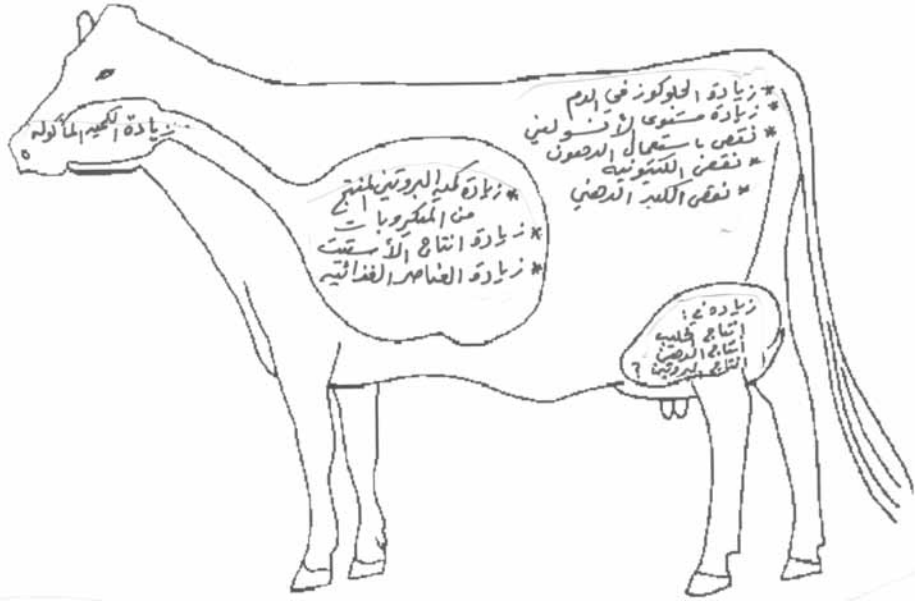 زيادة الكميه المأكوله
* زيادة كميه البروتين المنتج
من الميكروبات
* زيادة انتاج الأستيت
* زيادة العناصر الغذائيه
* زيادة الجلوكوز في الدم
* زيادة مستوى الأنسولين
* نقص باستعمال الدهون
* نقص الكيتونيه
* نقص الكبد الدهني
زيادة في:
انتاج الحليب
انتاج الدهن
انتاج البروتين ?